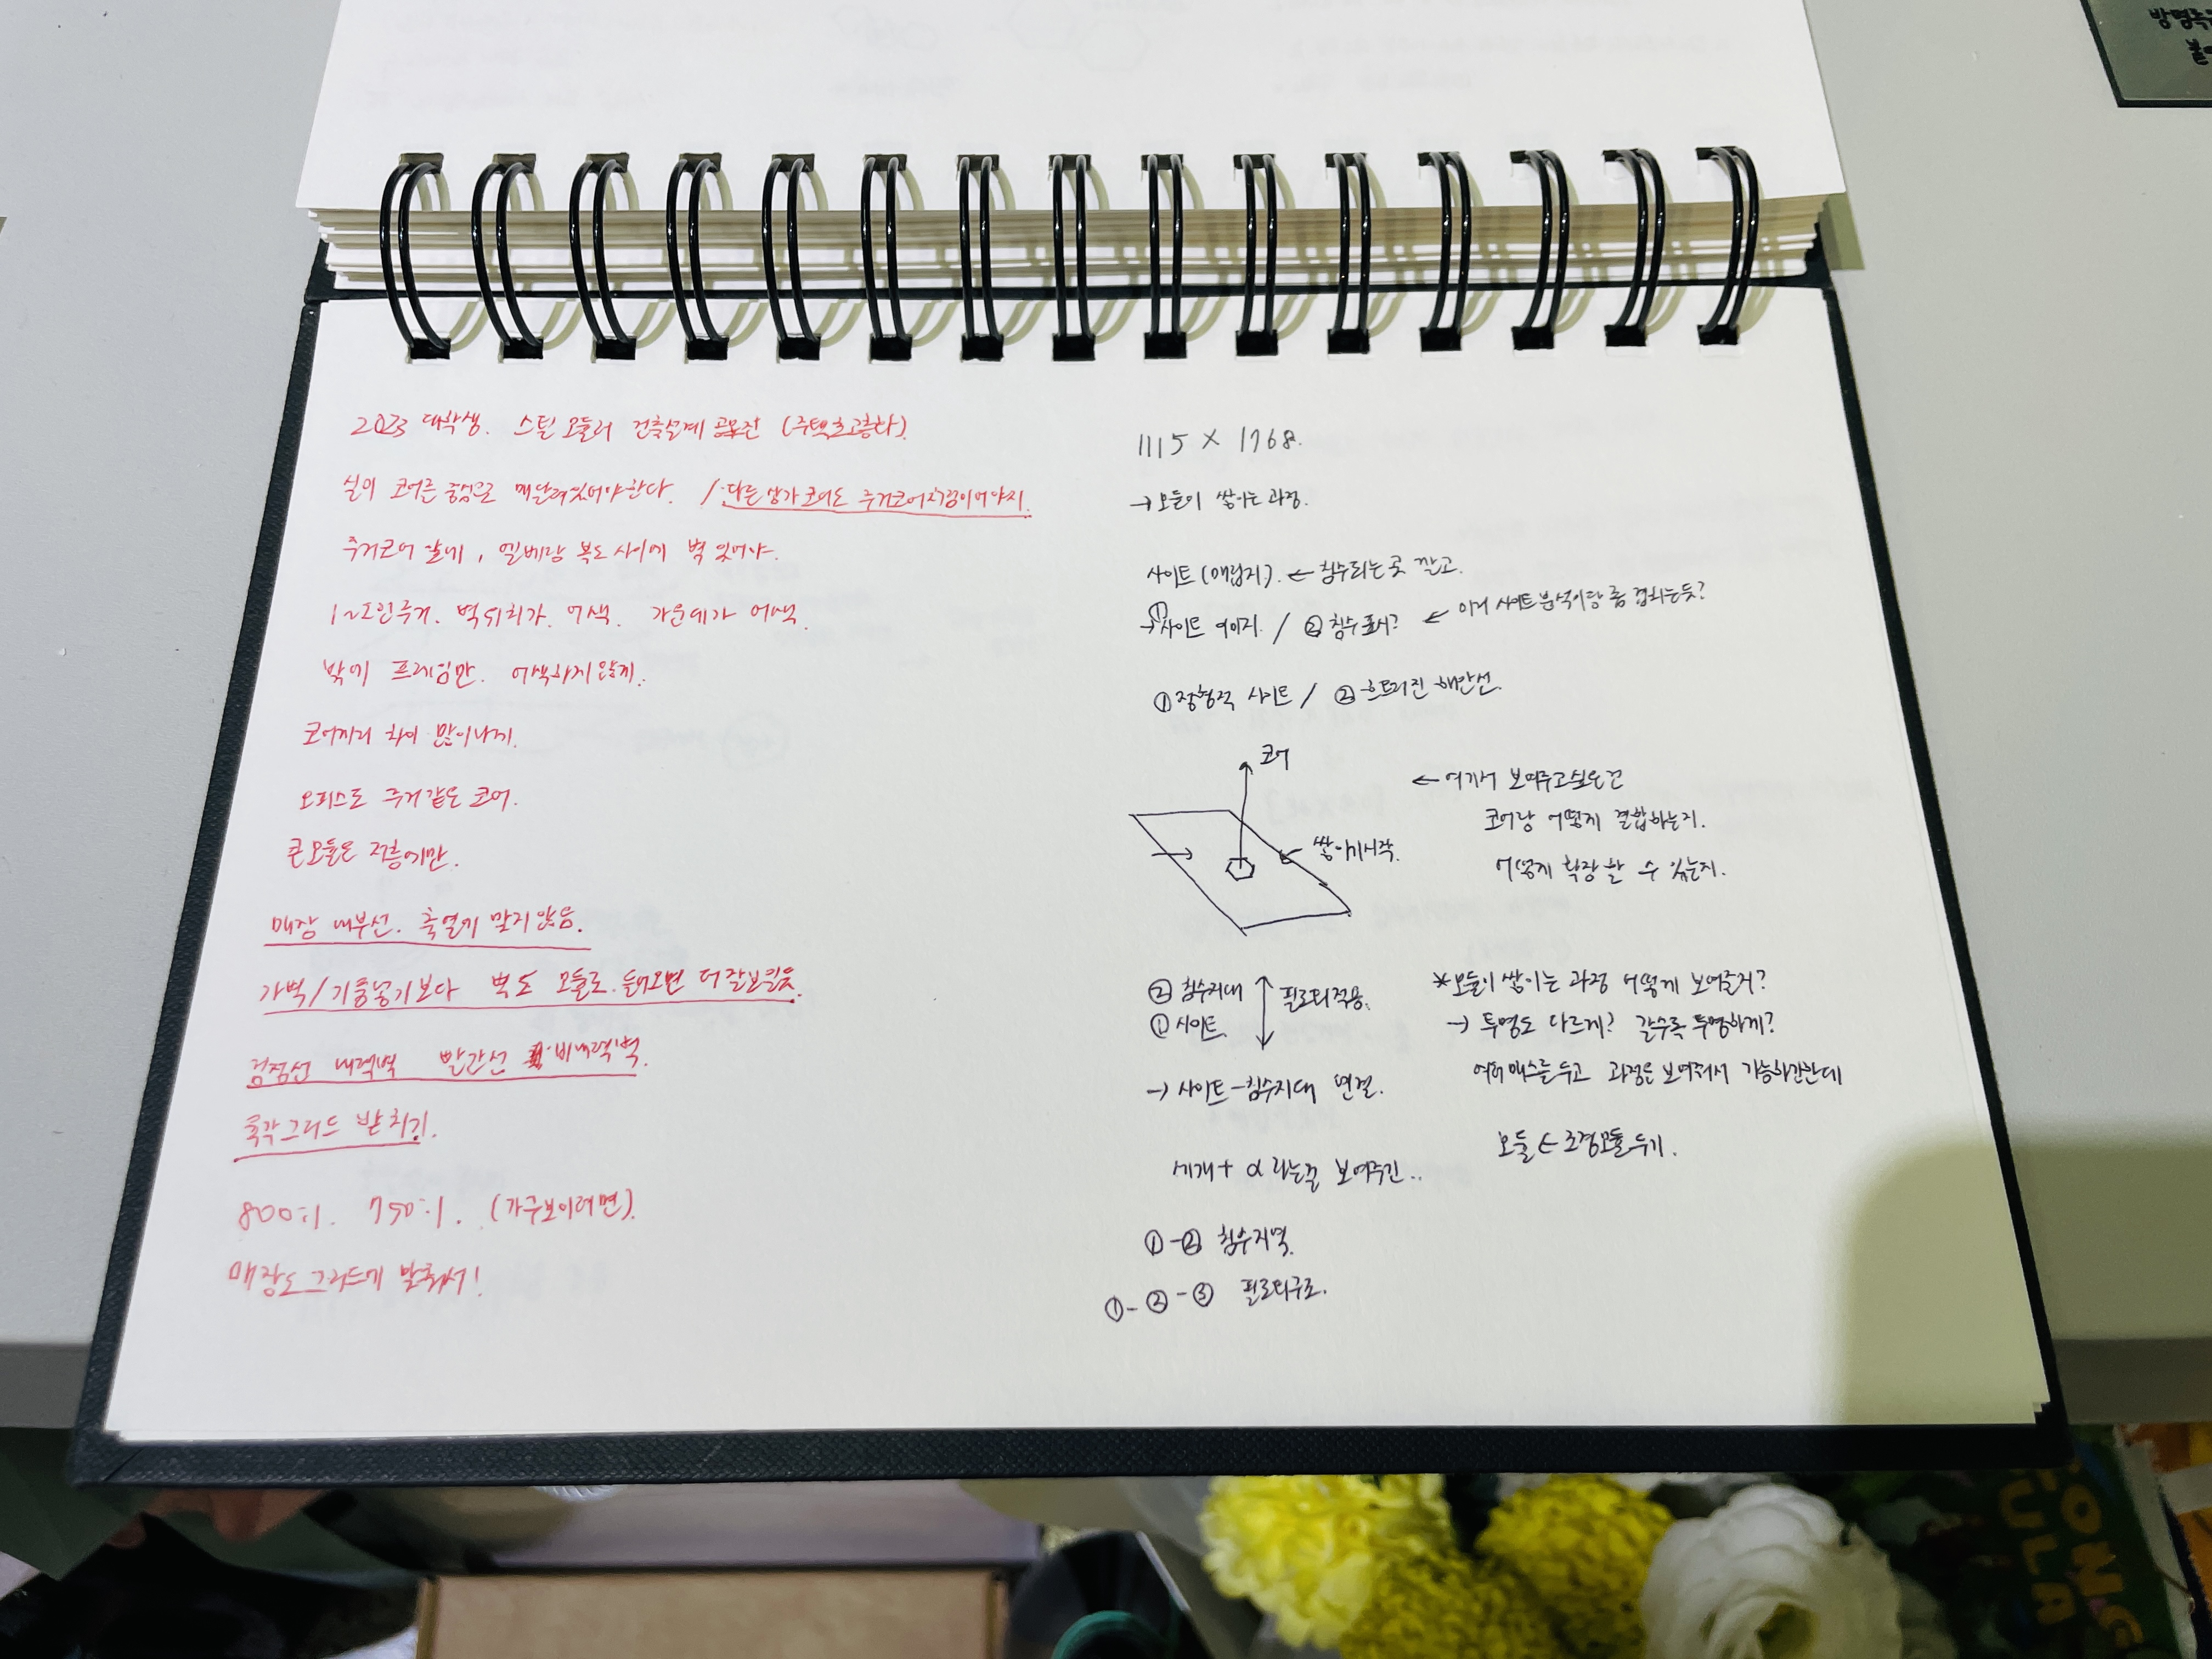 2023 대학생. 스틸 모듈러 건축설계 공모전 (주택초고층화).
실의 코어를 중심으로 매달려있어야한다. / 다른 상가코어도 주거코어처럼이어야지.
주거코어 갈네, 엘베랑 복도 사이에 벽 있어야.
1~2인주거. 벽위치가. 어색. 가운데가 어색.
밖에 프레임만. 어색하지 않게.
코어끼리 차이 많이나게.
오피스도 주거같은 코어.
큰모듈은 저층에만.
매장 내부선. 축열이 맞지않음.
가벽/기둥넣기보다 벽도 모듈로. 들어오면 더 잘보일듯.
검정선 내력벽 빨간선 비내력벽.
육각그리드 받치기.
800:1. 750:1. (가구보이려면).
매장도그리드에 맞춰서!
1115 × 1768.
→ 모듈이 쌓이는 과정.
사이트 (매립지). ← 침수되는 곳 깔고.
→ ① 사이트 이미지. / ② 침수표시? ← 이거 사이트분석이랑 좀 겹치는듯?
① 정형적 사이트 / ② 흐트러진 해안선.
코어
← 여기서 보여주고싶은건
코어랑 어떻게 결합하는지.
쌓이기시작.
어떻게 확장할 수 있는지.
② 침수지대
① 사이트.
필로티적용.
→ 사이트-침수지대 연결.
세개 + α 라는걸 보여주긴..
*모듈이 쌓이는 과정 어떻게 보여줄지?
→ 투명도 다르게? 갈수록 투명하게?
여러매스를두고 과정은 보여줘서 가능하긴한데
모듈 ← 조경모듈두기.
①-② 침수지역.
①-②-③ 필로티구조.
방명록